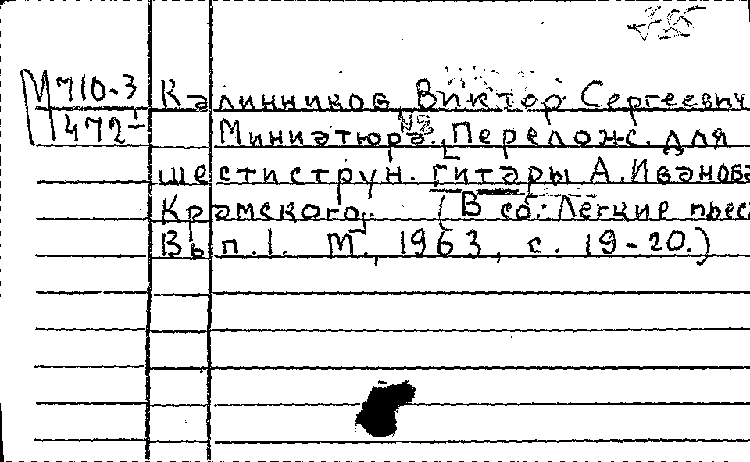 М 710-3
472
Калинников, Виктор Сергеевич
Миниатюра. Перелож. для
шестиструн. гитары А. Иванова
Крамского. (В сб.: Легкие пьес
Вып. 1. М., 1963, с. 19-20.)